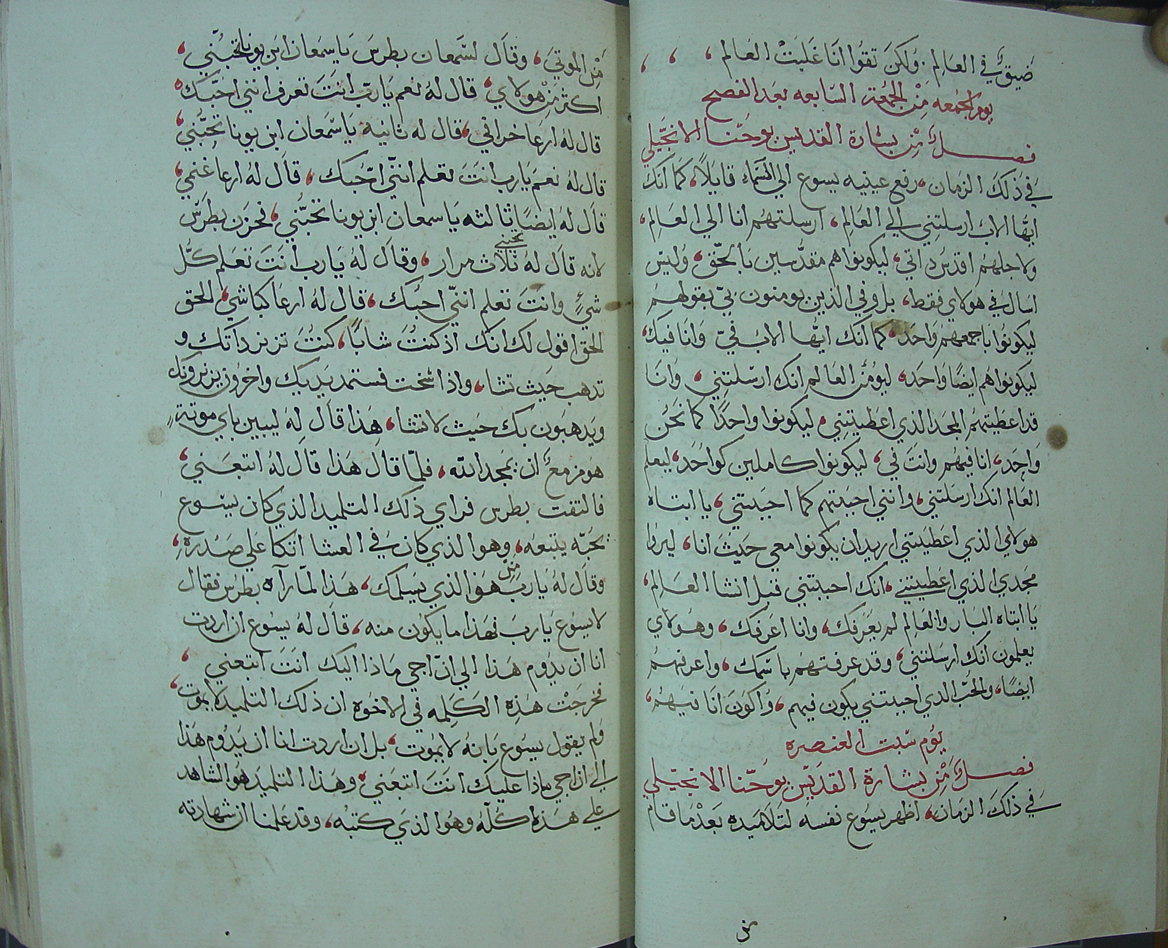 ضيق في العالم. ولكن تقوا انا غلبت العالم
يوم الجمعه من الجمعة السابعه بعد الفصح
فصل من بشارة القديس يوحنا الانجيلي
في ذلك الزمان، رفع عينيه يسوع الي السماء قايلاً، كما انك
ايها الاب ارسلتني الي العالم، ارسلتهم انا الي العالم،
ولاجلهم اقدس ذاتي، ليكونوا هم مقدسين بالحق، وليس
اسال في هولاي فقط، بل وفي الذين يومنون بي بقولهم
ليكونوا باجمعهم واحد، كما انك ايها الاب فيّ وانا فيك،
ليكونوا هم ايضًا واحد، ليومن العالم انك ارسلتني، وانا
قد اعطيتهم المجد الذي اعطيتني، ليكونوا واحدًا كما نحن
واحد، انا فيهم وانت في، ليكونوا كاملين كواحد، ليعلم
العالم انك ارسلتني، وانني احببتهم كما احببتني، يا ابتاه
هولاي الذي اعطيتني اريد ان يكونوا معي حيث انا، ليروا
مجدي الذي اعطيتني، انك احببتني قبل انشا العالم،
يا ابتاه البار والعالم لم يعرفك، وانا اعرفك، وهولاي
يعلمون انك ارسلتني، وقد عرفتهم باسمك، واعرفهم
ايضًا، والحب الذي احببتني يكون فيهم، واكون انا فيهم،
يوم سبت العنصره
فصل من بشارة القديس يوحنا الانجيلي
في ذلك الزمان، اظهر يسوع نفسه لتلاميذه بعد ما قام
من الموتي، وقال لسمعان بطرس يا سمعان ابن يونا تحبني،
اكثر من هولاي، قال له نعم يارب انت تعرف انني احبك،
قال له ارعا خرافي، قال له ثانية يا سمعان ابن يونا تحبني،
قال له نعم يارب انت تعلم انني احبك، قال له ارعا غنمي،
قال له ايضًا ثالثه يا سمعان ابن يونا تحبني، فحزن بطرس
لانه قال له ثلاث مرار تحبني، وقال له يارب انت تعلم كل
شيءٍ وانت تعلم انني احبك، قال له ارعا كباشي، الحق
الحق اقول لك انك اذ كنت شابًا، كنت تزنر ذاتك و
تذهب حيث تشا، واذا شخت فستمد يديك واخرون يزنرونك
ويذهبون بك حيث لا تشا، هذا قال له ليبين باي موتة
هو مزمع ان يمجد الله، فلما قال هذا قال له اتبعني،
فالتفت بطرس فراي ذلك التلميذ الذي كان يسوع
يحبه يتبعه، وهوا الذي كان في العشا اتكا علي صدره،
وقال له يارب من هوا الذي يسلمك، هذا لما رآه بطرس فقال
لايسوع يارب فهذا ما يكون منه، قال له يسوع ان اردت
انا ان يدوم هذا الي ان اجي ماذا اليك انت اتبعني
فخرجت هذه الكلمه في الاخوه ان ذلك التلميذ لا يموت،
ولم يقول يسوع بانه لا يموت، بل ان اردت انا ان يدوم هذا
الي ان اجي ماذا عليك انت اتبعني، وهذا التلميذ هو الشاهد
علي هذه كله وهوا الذي كتبه، وقد علمنا ان شهادته